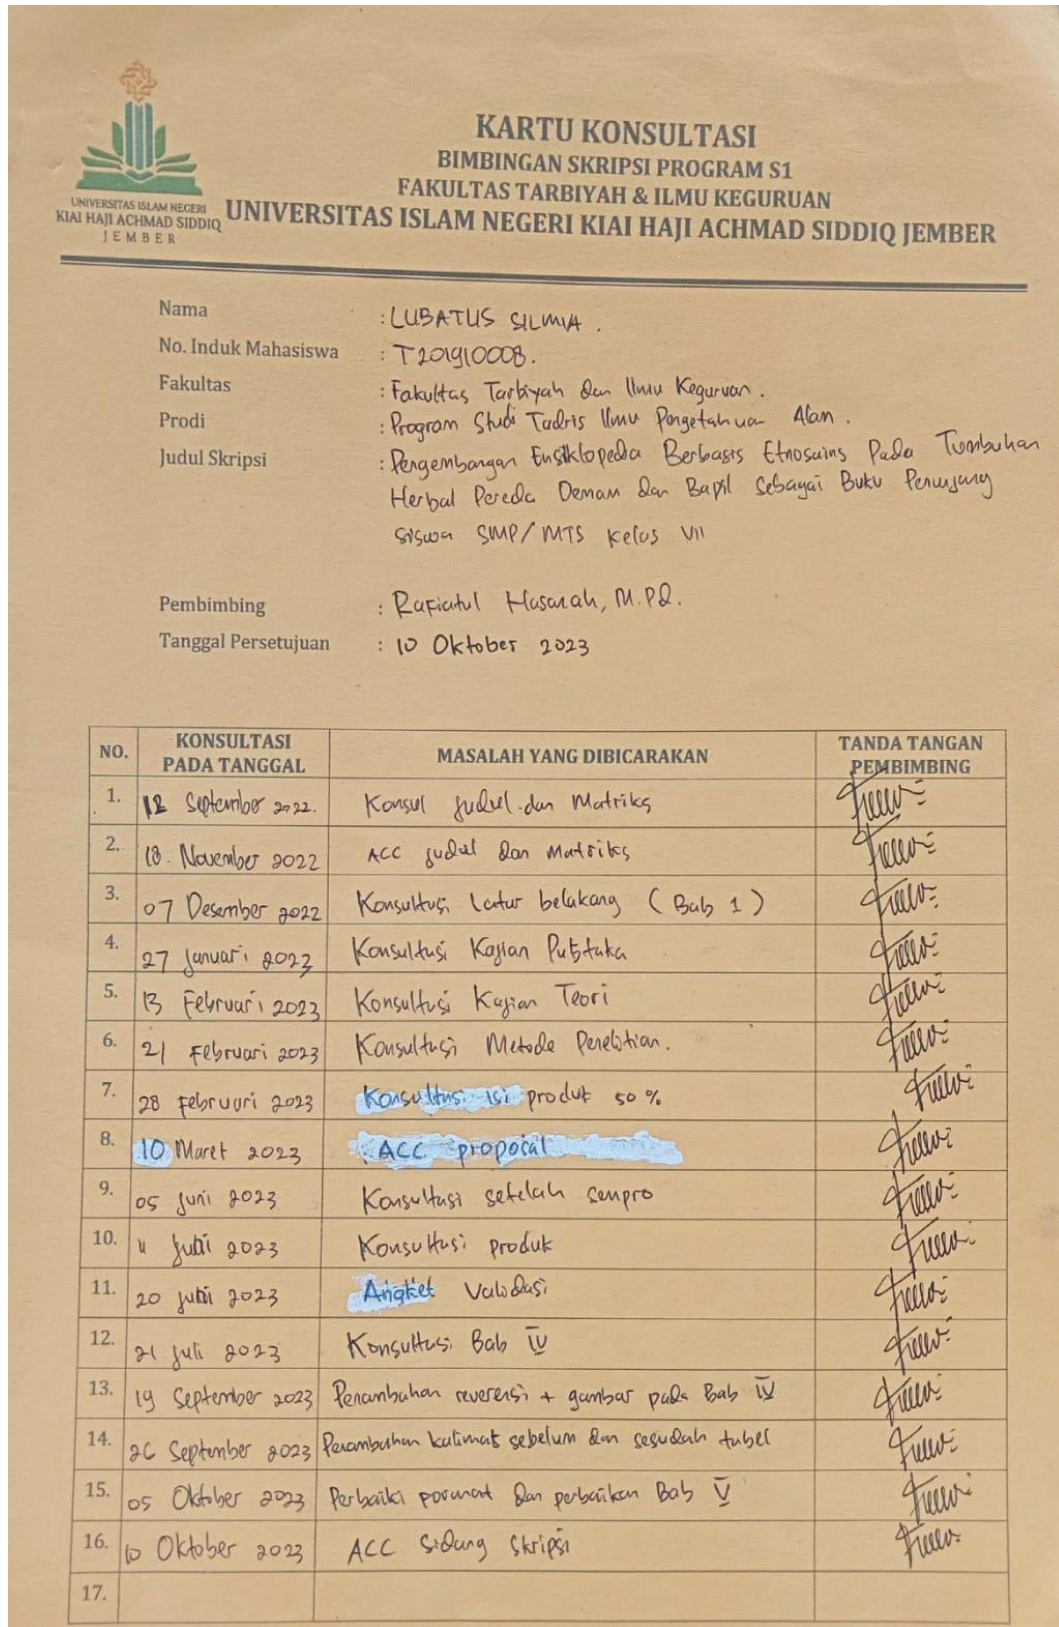 KARTU KONSULTASI
BIMBINGAN SKRIPSI PROGRAM S1
FAKULTAS TARBIYAH & ILMU KEGURUAN
UNIVERSITAS ISLAM NEGERI KIAI HAJI ACHMAD SIDDIQ JEMBER
UNIVERSITAS ISLAM NEGERI
KIAI HAJI ACHMAD SIDDIQ
JEMBER
Nama : LUBATUS SILMIA .
No. Induk Mahasiswa : T201910008.
Fakultas : Fakultas Tarbiyah dan Ilmu Keguruan .
Prodi : Program Studi Tadris Ilmu Pengetahuan Alan .
Judul Skripsi : Pengembangan Ensiklopedia Berbasis Etnosains Pada Tumbuhan
Herbal Pereda Demam dan Bapil Sebagai Buku Penunjang
Siswa SMP/MTS Kelas VII
Pembimbing : Rafiatul Hasanah, M.Pd.
Tanggal Persetujuan : 10 Oktober 2023
NO. KONSULTASI PADA TANGGAL MASALAH YANG DIBICARAKAN TANDA TANGAN PEMBIMBING
1. 12 September 2022. Konsul judul dan Matriks
2. 18. November 2022 ACC judul dan Matriks
3. 07 Desember 2022 Konsultasi Latar belakang (Bab 1)
4. 27 Januari 2023 Konsultasi Kajian Pustaka
5. 13 Februari 2023 Konsultasi Kajian Teori
6. 21 Februari 2023 Konsultasi Metode Penelitian.
7. 28 Februari 2023 Konsultasi isi produk 50 %
8. 10 Maret 2023 ACC proposal
9. 05 Juni 2023 Konsultasi setelah sempro
10. 11 2023 Konsultasi produk
11. 20 2023 Angket Validasi
12. 21 Juli 2023 Konsultasi Bab IV
13. 19 September 2023 Penambahan reverensi + gambar pada Bab IV
14. 26 September 2023 Penambahan kalimat sebelum dan sesudah tabel
15. 05 Oktober 2023 Perbaiki dan perbaikan Bab V
16. 10 Oktober 2023 ACC Sidang Skripsi
17.